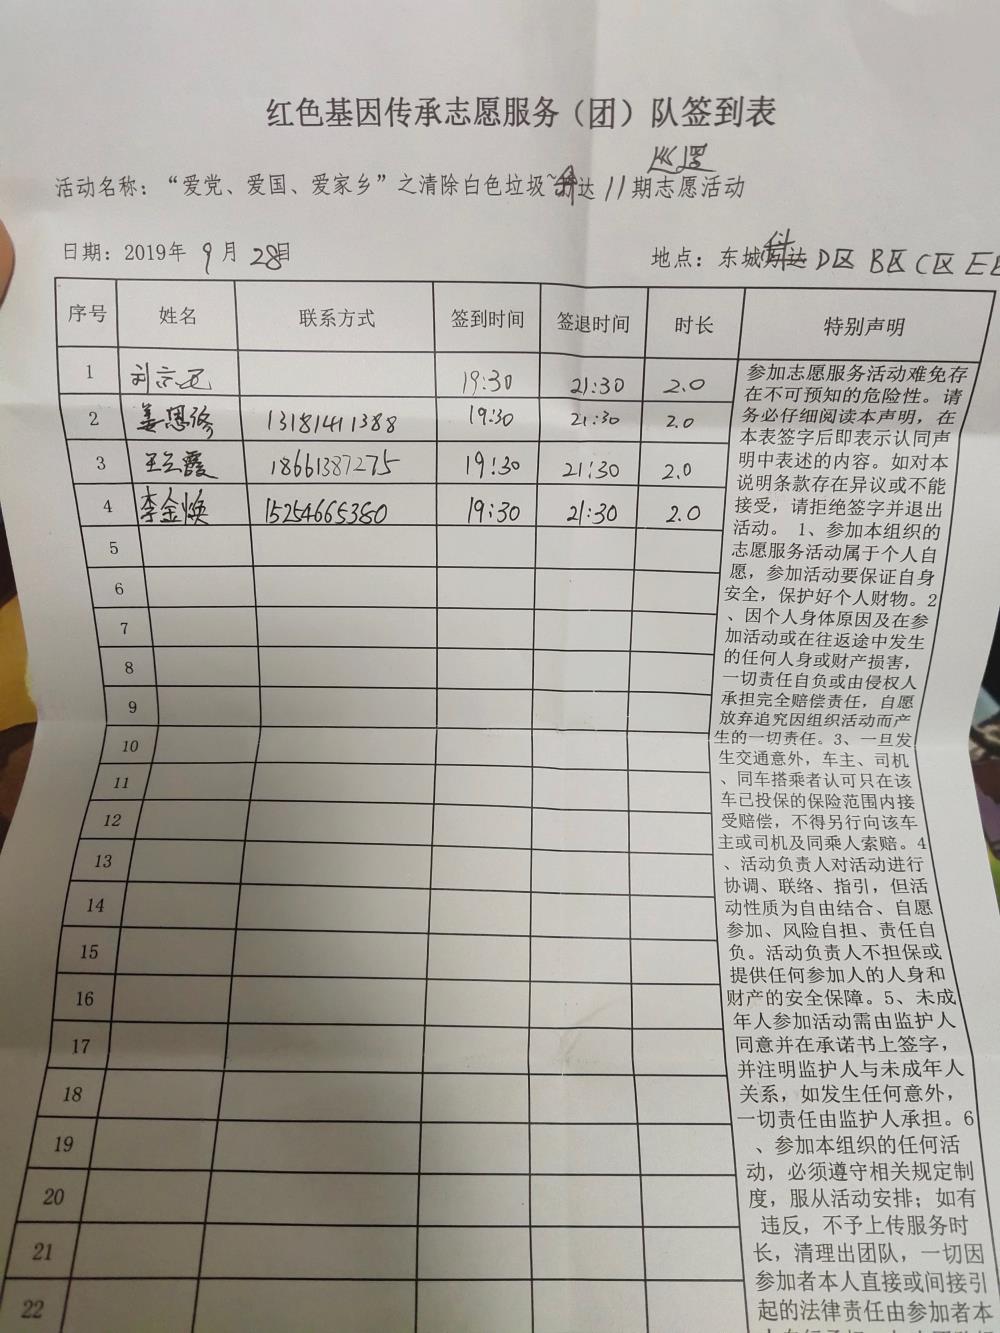 红色基因传承志愿服务（团）队签到表
巡逻
活动名称：“爱党、爱国、爱家乡”之清除白色垃圾~科达11期志愿活动
日期：2019年 9月 28日
地点：东城科达D区 B区 C区 E区
序号 姓名 联系方式 签到时间 签退时间 时长 特别声明
1 刘 19:30 21:30 2.0
2 姜恩 13181411388 19:30 21:30 2.0
3 王云霞 18661387275 19:30 21:30 2.0
4 李金焕 15254665380 19:30 21:30 2.0
5
6
7
8
9
10
11
12
13
14
15
16
17
18
19
20
21
22
参加志愿服务活动难免存
在不可预知的危险性。请
务必仔细阅读本声明，在
本表签字后即表示认同声
明中表述的内容。如对本
说明条款存在异议或不能
接受，请拒绝签字并退出
活动。 1、参加本组织的
志愿服务活动属于个人自
愿，参加活动要保证自身
安全，保护好个人财物。2
、因个人身体原因及在参
加活动或在往返途中发生
的任何人身或财产损害，
一切责任自负或由侵权人
承担完全赔偿责任，自愿
放弃追究因组织活动而产
生的一切责任。3、一旦发
生交通意外，车主、司机
、同车搭乘者认可只在该
车已投保的保险范围内接
受赔偿，不得另行向该车
主或司机及同乘人索赔。4
、活动负责人对活动进行
协调、联络、指引，但活
动性质为自由结合、自愿
参加、风险自担、责任自
负。活动负责人不担保或
提供任何参加人的人身和
财产的安全保障。5、未成
年人参加活动需由监护人
同意并在承诺书上签字，
并注明监护人与未成年人
关系，如发生任何意外，
一切责任由监护人承担。6
、参加本组织的任何活
动，必须遵守相关规定制
度，服从活动安排；如有
违反，不予上传服务时
长，清理出团队，一切因
参加者本人直接或间接引
起的法律责任由参加者本